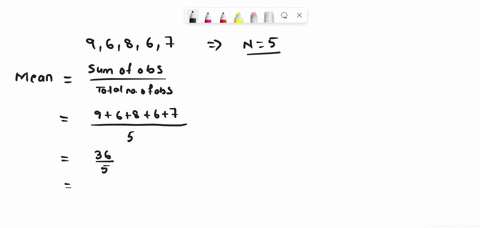 9, 6, 8, 6, 7 => N = 5
Mean = Sum of obs / Total no. of obs
= 9 + 6 + 8 + 6 + 7 / 5
= 36 / 5
=